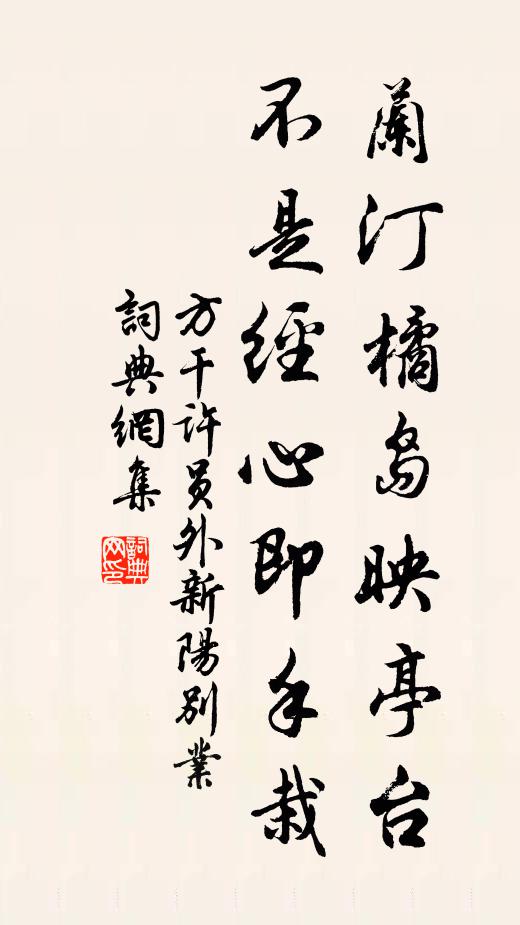 蘭汀橘島映亭台
不是經心即手栽
方干許員外新陽別業
詞典網集
詞典网印